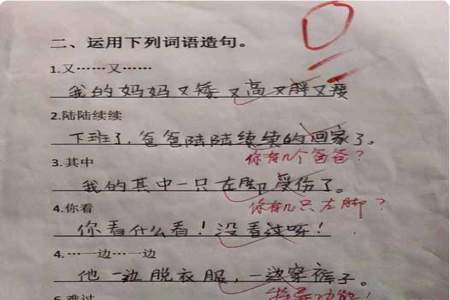 二、运用下列词语造句。
1.又……又……
我的妈妈又矮又高又胖又瘦
2.陆陆续续
下班了,爸爸陆陆续续的回家了。
你有几个爸爸?
3.其中
我的其中一只左脚受伤了。
你有几只左脚?
4.你看
你看什么看!没看过呀!
4.…一边…一边
他一边脱衣服,一边穿裤子。